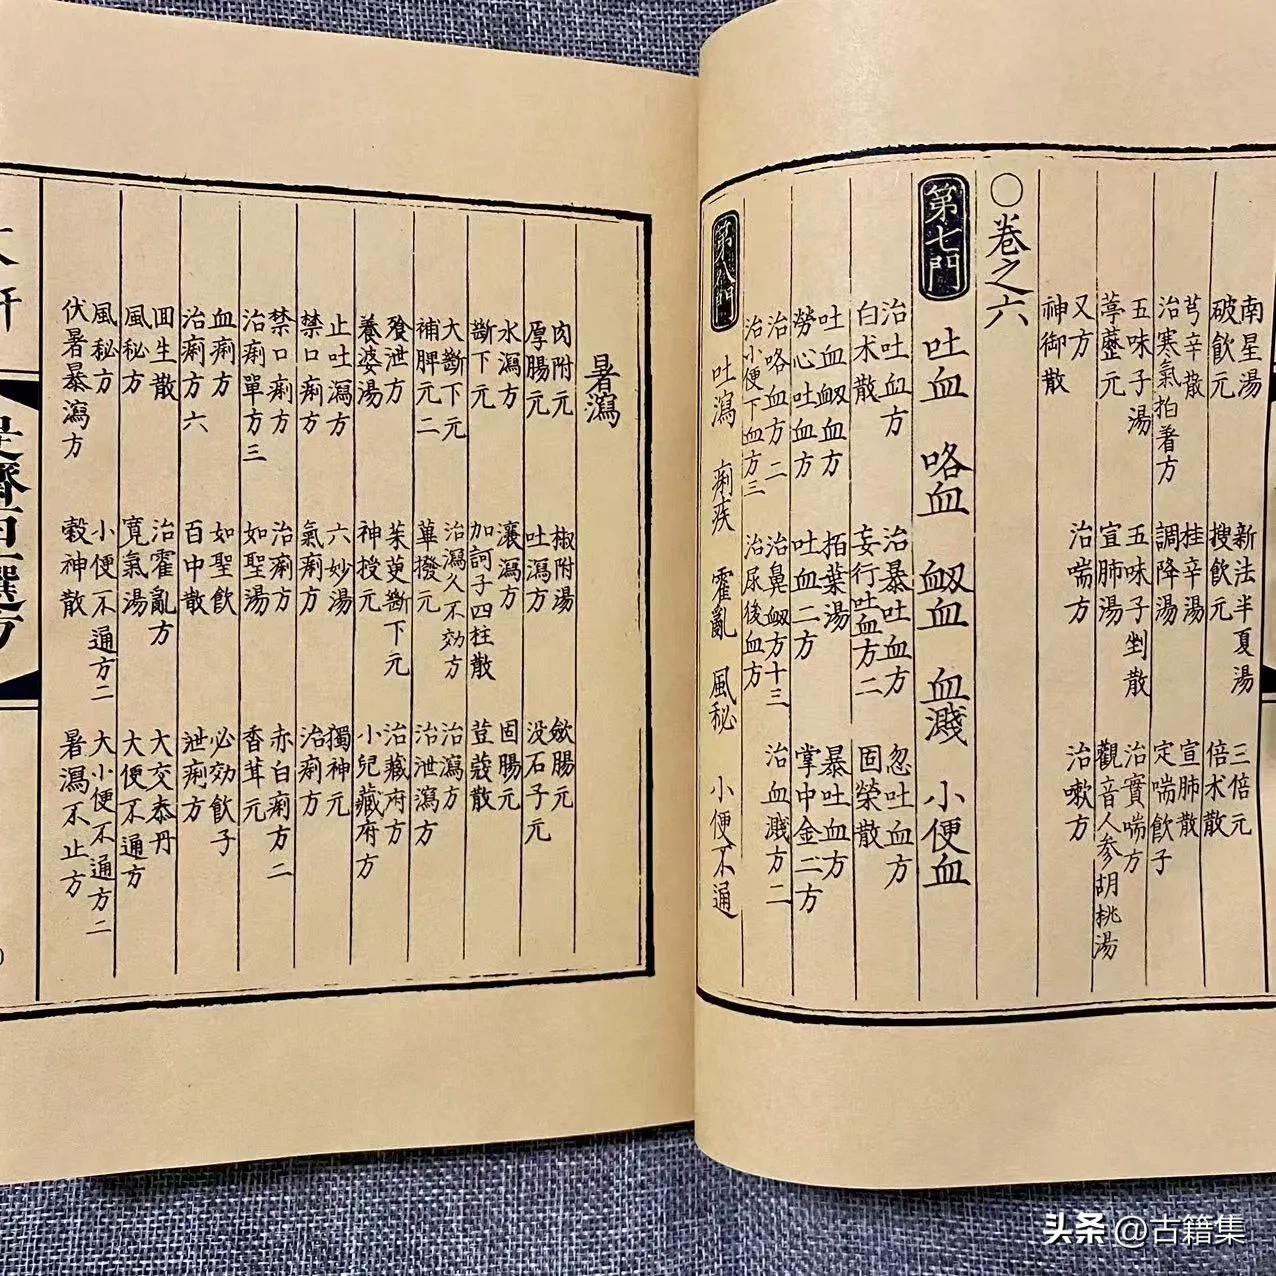 南星湯 新法半夏湯 三倍元
破飲元 搜飲元 倍术散
芎辛散 桂辛湯 宣肺散
治寒氣拍着方 調降湯 定喘飲子
五味子湯 五味子剉散 治實喘方
葶藶元 宣肺湯 觀音人參胡桃湯
又方 治喘方 治嗽方
神御散
○卷之六
第七門 吐血 咯血 衄血 血濺 小便血
治吐血方 治暴吐血方 忽吐血方
白术散 妄行吐血方二 固榮散
吐血衄血方 拓葉湯 暴吐血方
勞心吐血方 吐血二方 掌中金二方
治咯血方二 治鼻衄方十三 治血濺方二
治小便下血方三 治尿後血方
第八門 吐瀉 痢疾 霍亂 風秘 小便不通
暑瀉
肉附元 椒附湯 歛腸元
厚腸元 吐瀉方 没石子元
水瀉方 瀼瀉方 固腸元
斷下元 加訶子四柱散 荳蔻散
大斷下元 治瀉久不効方 治瀉方
補脾元二 蓽撥元 治泄瀉方
飱泄方 茱萸斷下元 治藏府方
養婆湯 神授元 小兒藏府方
止吐瀉方 六妙湯 獨神元
禁口痢方 氣痢方 治痢方
禁口痢方 治痢方 赤白痢方二
治痢單方三 如聖湯 香茸元
血痢方 如聖飲 必効飲子
治痢方六 百中散 泄痢方
回生散 治霍亂方 大交泰丹
風秘方 寛氣湯 大便不通方
風秘方 小便不通方二 大小便不通方二
伏暑暴瀉方 穀神散 暑瀉不止方
是齋百選方
头条 @古籍集